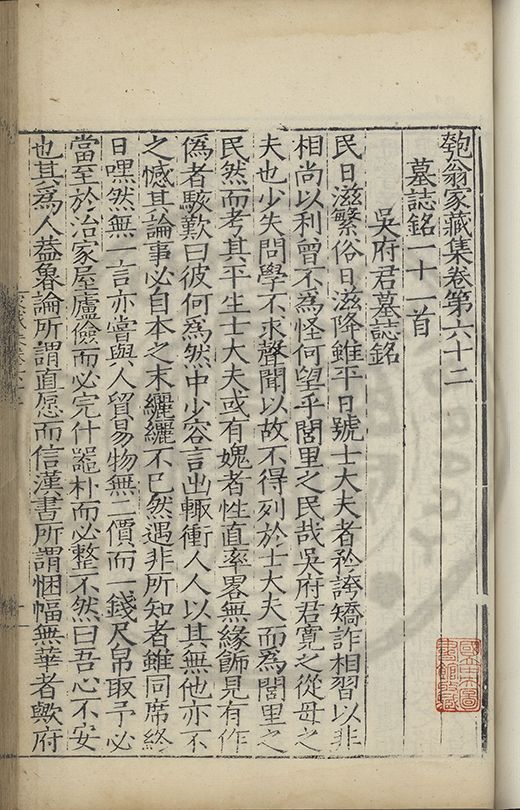 匏翁家藏集卷第六十二
墓誌銘一十一首
吳府君墓誌銘
民日滋繁俗日滋降雖平日號士大夫者矜誇矯詐相習以非
相尚以利曾不為怪何望乎閭里之民哉吳府君寬之從母之
夫也少失問學不求聲聞以故不得列於士大夫而為閭里之
民然而考其平生士大夫或有媿者性直率畧無緣飾見有作
偽者駭歎曰彼何為然中少容言出輙衝人人以其無他亦不
之憾其論事必自本之末纚纚不已然遇非所知者雖同席終
日嘿然無一言亦嘗與人貿易物無二價而一錢尺帛取予必
當至於治家屋廬儉而必完什器朴而必整不然曰吾心不安
也其為人葢魯論所謂直愿而信漢書所謂悃愊無華者歟府